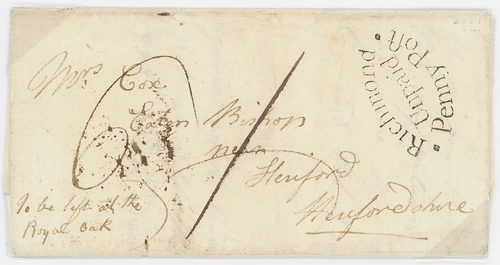 Richmond
Unpaid
Penny Post
Mrs Cox
Eaton Bishop
near
Hereford
Herefordshire
To be left at the
Royal Oak